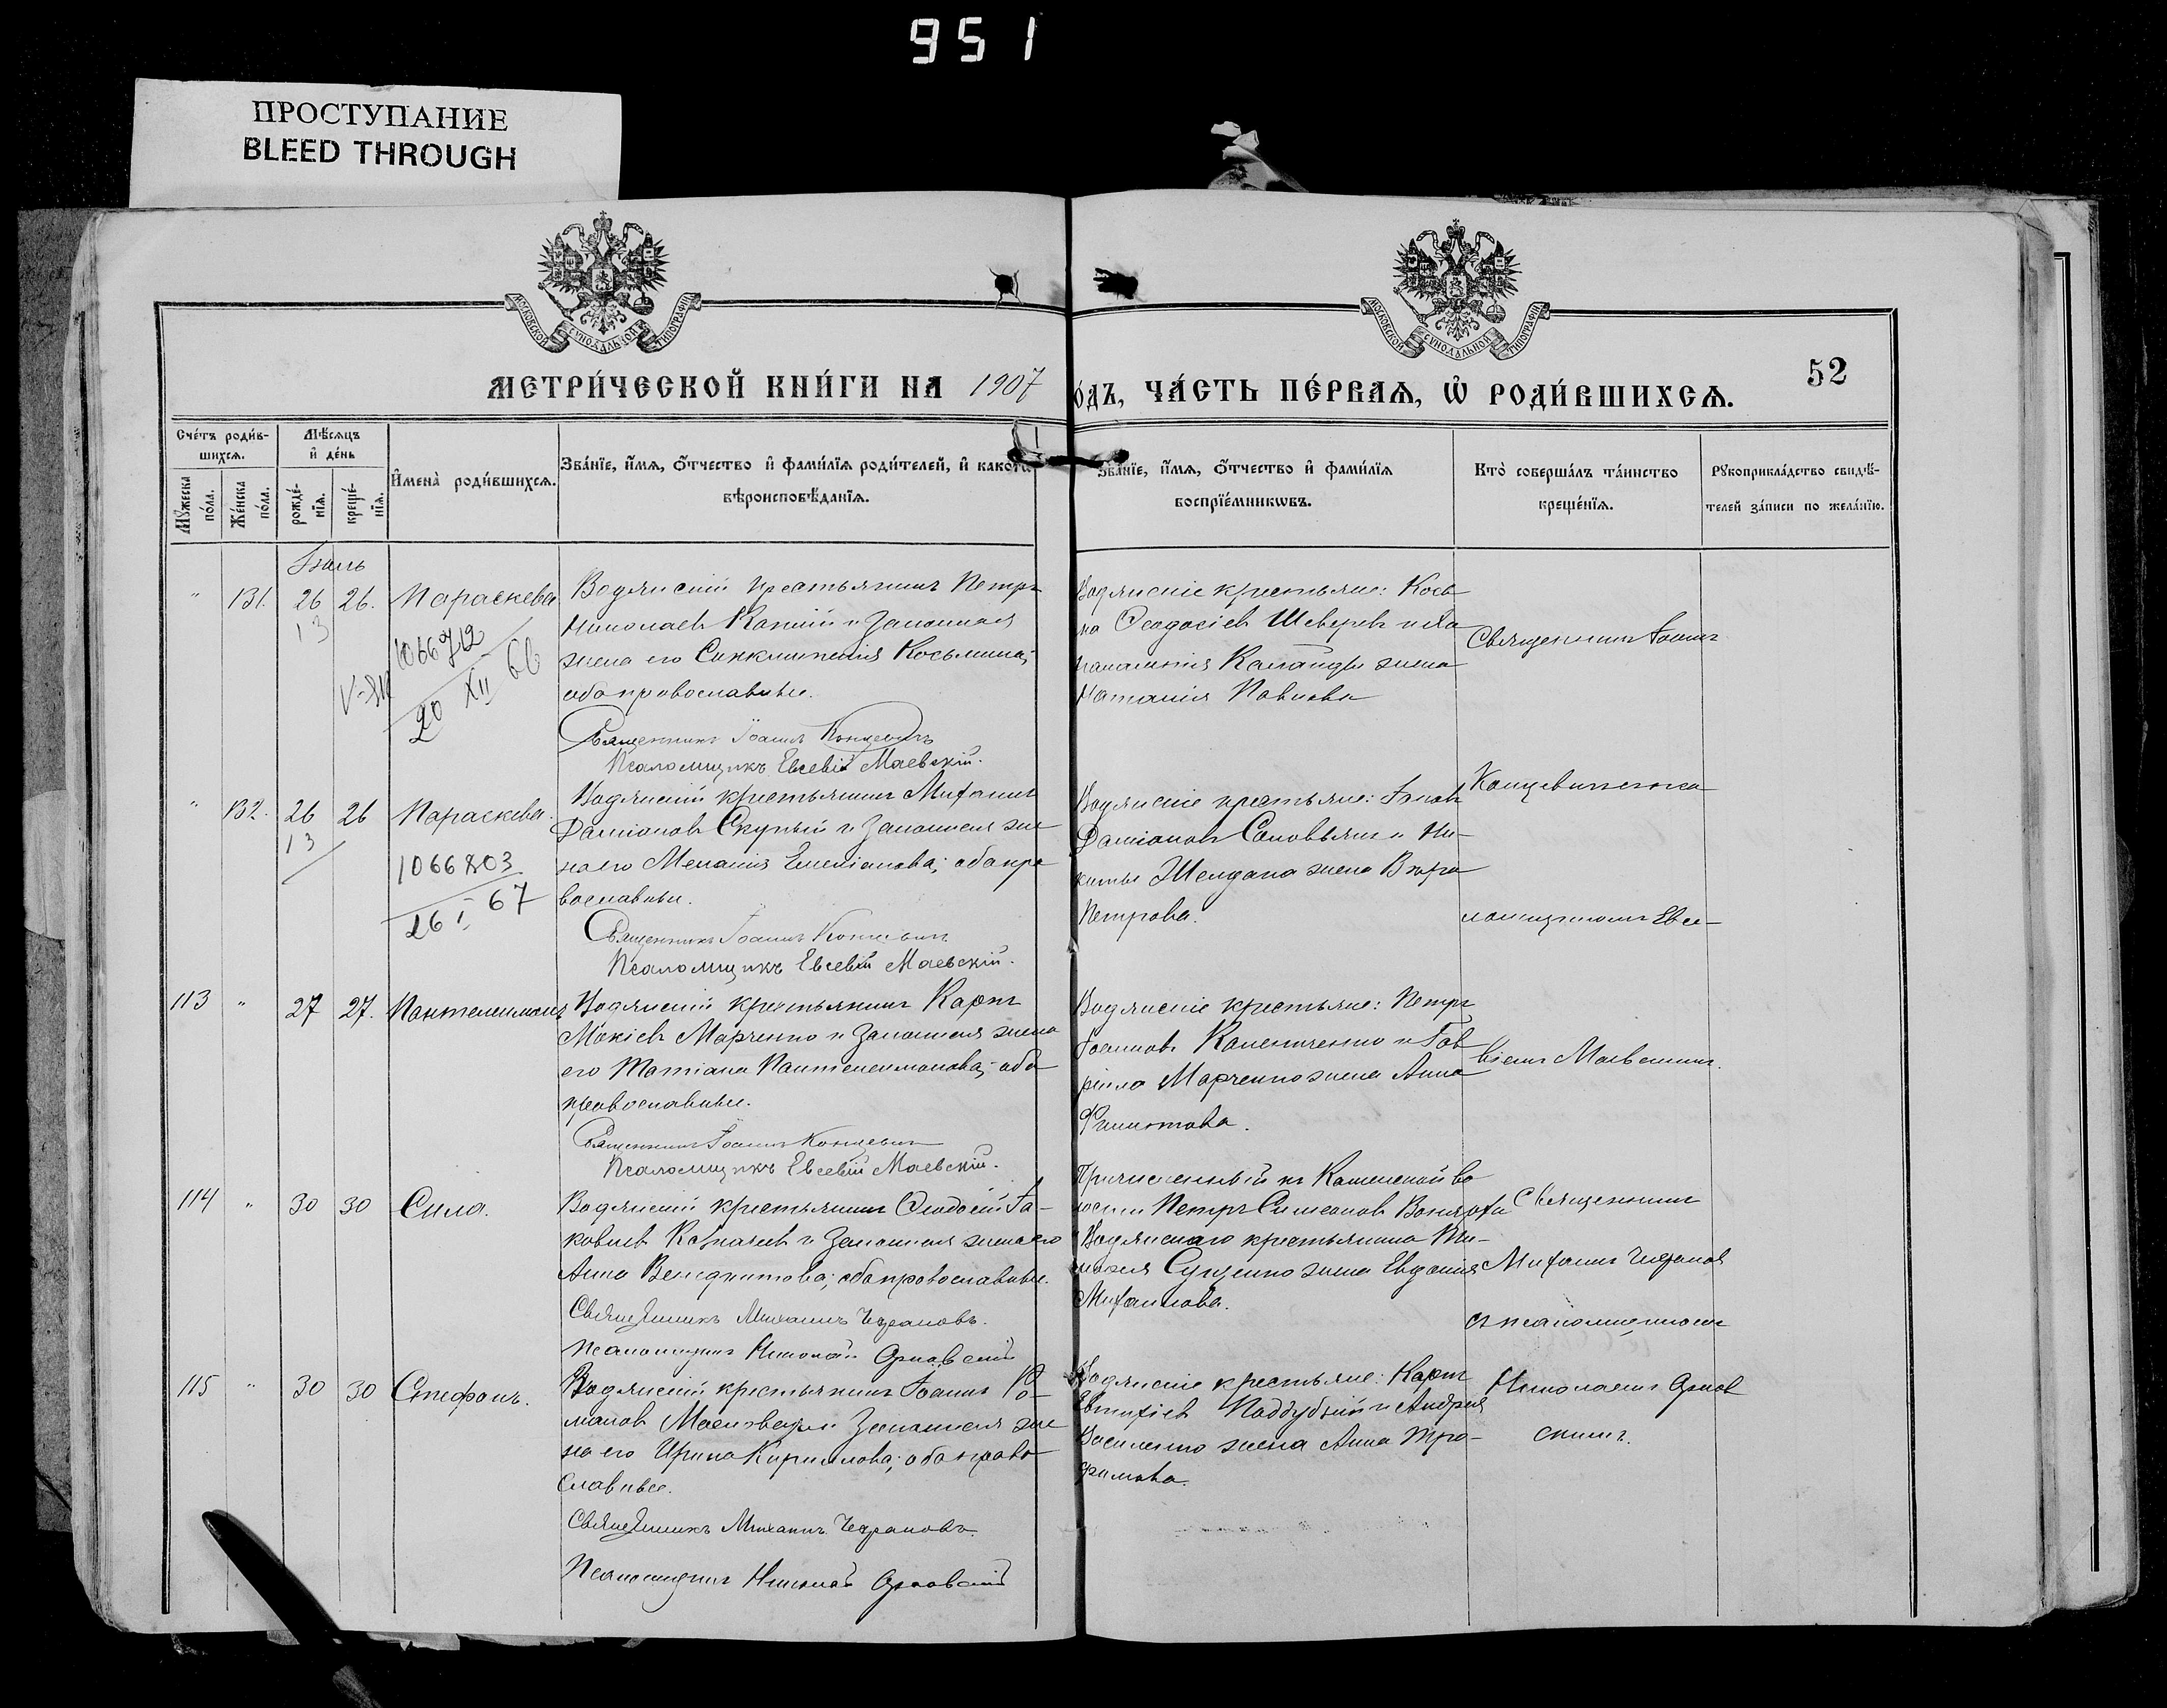 951
ПРОСТУПАНИЕ
BLEED THROUGH
МОСКОВСКОЙ СѴНОДАЛЬНОЙ ТИПОГРАФІИ
МОСКОВСКОЙ СѴНОДАЛЬНОЙ ТИПОГРАФІИ
МЕТРИ́ЧЕСКОЙ КНИ́ГИ НА 1907
о́дъ, ЧА́СТЬ ПЕ́РВАѦ, Ѡ҆ РОДИ́ВШИХСѦ.
52
Сче́тъ роди́в-
шихсѧ.
Мѣ́сѧцъ
и҆ де́нь
Мꙋ́жеска
по́ла.
Же́нска
по́ла.
рожде́-
нїѧ.
креще́-
нїѧ.
И҆мена̀ роди́вшихсѧ.
Зва́нїе, и҆́мѧ, ѻ҆́тчество и҆ фами́лїѧ роди́телей, и҆ како́гѡ
вѣроисповѣ́данїѧ.
Зва́нїе, и҆́мѧ, ѻ҆́тчество и҆ фами́лїѧ
воспрїе́мникѡвъ.
Кто̀ соверша́лъ та́инство
креще́нїѧ.
Рꙋкоприкла́дство свидѣ́-
телей за́писи по жела́нїю.
Іюль
" 131. 26 26. Параскева
13
1066712
20 XII 66
Водянскій крестьянинъ Петръ
Николаевъ и законная
жена его Синклитикія Косьмина;
оба православные.
Священникъ Іоаннъ Концевичъ
Псаломщикъ Евсевій Маевскій.
Водянскіе крестьяне: Кось-
ма Ѳеодосіевъ Шеверевъ и
жена
Наталія Павлова
Священникъ Іоаннъ
" 132. 26 26 Параскева.
13
1066803
26 I 67
Водянскій крестьянинъ Михаилъ
Даміановъ Скупый и законная же-
на его Меланія Емеліанова; оба пра-
вославные.
Священникъ Іоаннъ Концевичъ
Псаломщикъ Евсевій Маевскій.
Водянскіе крестьяне:
Даміановъ Соловьянъ и Ни-
киты Шелдана жена Вѣра
Петрова.
Концевичъ
ломщикомъ Евсе-
113 " 27 27. Пантелеимонъ
Водянскій крестьянинъ Карпъ
Мокіевъ Марченко и законная жена
его Татіана Пантелеимонова; оба
православные.
Священникъ Іоаннъ Концевичъ
Псаломщикъ Евсевій Маевскій.
Водянскіе крестьяне: Петръ
Іоанновъ Калениченко и Гав-
ріила Марченко жена Анна
Филиппова.
віемъ Маевскимъ.
114 " 30 30 Сила.
Водянскій крестьянинъ Ѳеодосій Іа-
ковлевъ Казначевъ и законная жена его
Анна Венедиктова; оба православные.
Священникъ Михаилъ Чефрановъ.
Псаломщикъ Николай Орловскій
Причисленный къ Каменской во-
лости Петръ Симеоновъ и
Водянскаго крестьянина
Сущенко жена Евдокія
Михаилова.
Священникъ
Михаилъ Чефрановъ
съ псаломщикомъ
115 " 30 30 Стефанъ.
Водянскій крестьянинъ Іоаннъ Ро-
мановъ и законная же-
на его Ирина Кириллова; оба право-
славные.
Священникъ Михаилъ Чефрановъ.
Псаломщикъ Николай Орловскій
Водянскіе крестьяне: Карпъ
Евтихіевъ Поддубный и Андрея
Василенко жена Анна Тро-
фимова.
Николаемъ Орлов-
скимъ.